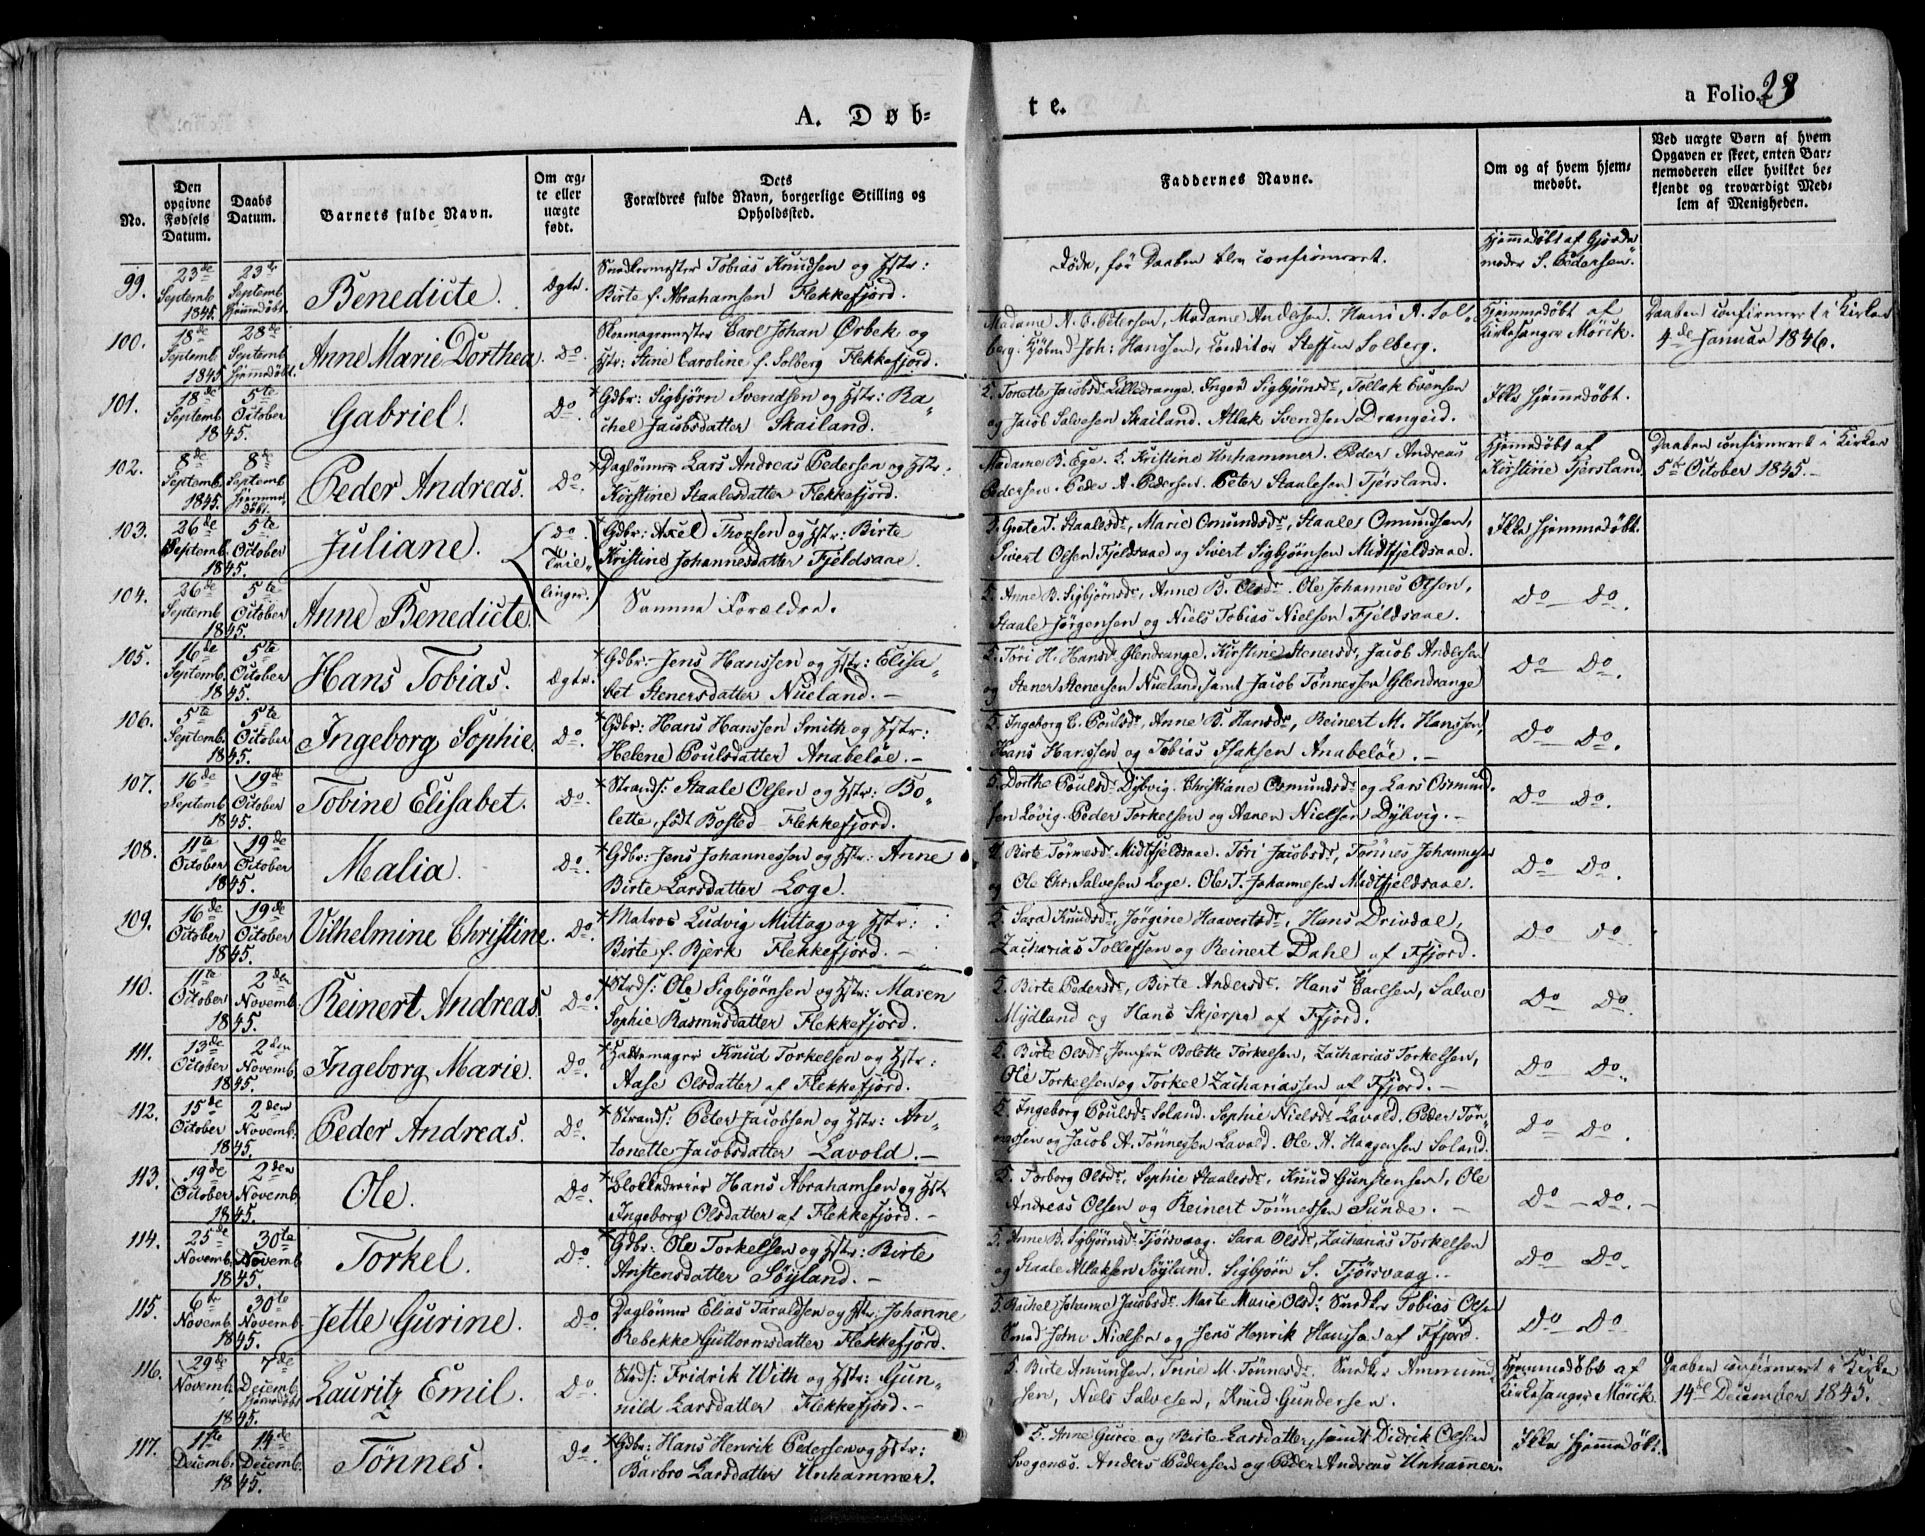 A. Døb-
te.
a Folio 28
No.
Den opgivne Fødsels Datum.
Daabs Datum.
Barnets fulde Navn.
Om ægte eller uægte født.
Dets Forældres fulde Navn, borgerlige Stilling og Opholdssted.
Faddernes Navne.
Om og af hvem hjemmedøbt.
Ved uægte Børn af hvem Opgaven er skeet, enten Barnemoderen eller hvilket bekjendt og troværdigt Medlem af Menigheden.
99. 23de Septemb. 1845. 23de Septemb. Hjemmedøbt Benedicte. Ægte. Snedkermester Tobias Knudsen og Hstr:
Birte f. Abrahamsen Flekkefjord.
Døde, før Daaben blev confirmeret.
Hjemmedøbt af Gjordemoder S. Pedersen.
100. 18de Septemb. 1845 28de Septemb. Hjemmedøbt. Anne Marie Dorthea. Do. Skomagermester Carl Johan Ørbek og
Hstr: Stine Caroline f. Solberg Flekkefjord.
Madame A. B. Petersen, Madame Andersen. Hans A. Sol-
berg. Kjøbmd Joh: Hanssen, Conditor Steffen Solberg.
Hjemmedøbt af Kirkesanger Mörck.
Daaben confirmeret i Kirken 4de Januar 1846.
101. 18de Septemb. 5te October 1845. Gabriel. Do. Gdbr: Sigbjørn Svendsen og Hstr: Ra-
chel Jacobsdatter Skailand.
5. Tonette Jacobsdr Lilledrange. Inger Sigbjørnsdr, Tollak Evensen
og Jacob Salvesen Skailand. Atlak Svendsen Drangeid.
Ikke hjemmedøbt.
102. 8de Septemb. 1845. 8de Septemb. Hjemmedøbt. Peder Andreas. Do. Daglønner Lars Andreas Pedersen og Hstr.
Kirstine Staalesdatter Flekkefjord.
Madame B. Ege. Kristine Unhammer. Peder Andreas
Pedersen. Peder A. Pedersen. Peter Staalesen Tjørsland.
Hjemmedøbt af Kirstine Tjørsland.
Daaben confirmeret i Kirken 5te October 1845.-
103. 26de Septemb. 5te October 1845. Juliane. Do. Tvil- Gdbr: Axel Thorsen og Hstr: Birte
Kristine Johannesdatter Fjeldsaae.
Grete T. Staalesdr, Marie Omundsdr, Staale Omundsen,
Sivert Olsen Fjeldsaae og Sivert Sigbjørnsen Midtfjeldsaae.
Ikke hjemmedøbt.
104. 26de Septemb. 5te October 1845. Anne Benedicte. linger. Samme Forældre.
5. Anne B. Sigbjørnsdr, Anne B. Olsdr. Ole Johannes Olsen,
Staale Jørgensen og Niels Tobias Nielsen Fjeldsaae.
Do - Do.
105. 16de Septemb. 5te October 1845. Hans Tobias. Ægte. Gdbr.- Jens Hanssen og Hstr: Elisa-
bet Stenersdatter Nueland.-
5. Tori H. Hansdr Glendrange. Kirstine Stenersdr, Jacob Andersen
og Stener Stenersen Nueland, samt Jacob Tønnessen Glendrange
Do Do.
106. 5te Septemb. 5te October 1845. Ingeborg Sophie. Do. Gdbr: Hans Hanssen Smith og Hstr:
Helene Poulsdatter Anabeløe.-
5. Ingeborg E. Poulsdr, Anne B. Hansdr, Reinert M. Hanssen,
Hans Hanssen og Tobias Isaksen Anabeløe.-
Do - Do.
107. 16de Septemb. 19de October 1845. Tobine Elisabet. Do. Strands: Staale Olsen og Hstr: Bo-
lette, født Bosted Flekkefjord.
5. Dorthe Poulsdr Dybvig. Christiane Osmundsdr og Lars Osmund-
sen Løvig. Peder Torkelsen og Aanen Nielsen Dybvig.-
Do - Do.
108. 11te October 19de October 1845. Malia. Do. Gdbr: Jens Johannessen og Hstr: Anne
Birte Larsdatter Loge.
Birte Tørresdr Midtfjeldsaae. Tori Jacobsdr, Tönnes Johannesen
og Ole Chr. Salvesen Loge. Ole T. Johannesen Midtfjeldsaae.
Do Do.
109. 16de October 19de October 1845. Vilhelmine Christine. Do. Matros Ludvig Mittag og Hstr:
Birte f. Bjerk Flekkefjord.-
5. Sara Knudsdr, Jørgine Haavertsdr, Hans Drivdal,
Zacharias Tollefsen og Reinert Dahl af Ffjord.
Do Do
110. 11te October 2den Novemb. 1845. Reinert Andreas. Do. Strds: Ole Sigbjørnsen og Hstr: Maren
Sophie Rasmusdatter Flekkefjord.
5. Birte Pedersdr, Birte Andersdr. Hans Carlsen, Salve
Mydland og Hans Skjerpe af Ffjord.
Do Do.
111. 13de October 2den Novemb. 1845. Ingeborg Marie. Do. Hattemager Knud Torkelsen og Hstr:
Aase Olsdatter af Flekkefjord.
5. Birte Olsdr, Jomfru Bolette Torkelsen, Zacharias Torkelsen,
Ole Torkelsen og Torkel Zachariassen af Ffjord.-
Do Do.
112. 15de October 2den Novemb. 1845. Peder Andreas. Do. Strands: Peter Jacobsen og Hstr: An-
tonette Jacobsdatter Lavold.-
5. Ingeborg Poulsdr Soland. Sophie Nielsdr Lavold, Peder Tön-
nessen og Jacob A. Tönnessen Lavold. Ole A. Haagensen Soland.
Do Do.
113. 19de October 2den Novemb. 1845. Ole. Do. Blokkedreier Hans Abrahamsen og Hstr
Ingeborg Olsdatter af Flekkefjord.-
5. Torborg Olsdr, Sophie Staalesdr, Knud Gunstensen, Ole
Andreas Olsen og Reinert Tönnessen Sunde.-
Do - Do.-
114. 25de Novemb. 30te Novemb. 1845. Torkel. Do. Gdbr: Ole Torkelsen og Hstr: Birte
Aristensdatter Söyland.-
5. Anne B. Sigbjørnsdr Tjörsvaag. Sara Olsdr, Zacharias Torkelsen
og Staale Atlaksen Söyland. Sigbjörn S. Tjörsvaag.-
Do Do
115. 6te Novemb. 30te Novemb. 1845. Jette Gurine. Do. Daglønner Elias Taraldsen og Hstr: Johanne
Rebekke Guttormsdatter Flekkefjord.
5. Rachel Johanne Jacobsdr. Marte Marie Olsdr Snedker Tobias Olsen
Smed John Nielsen og Jens Henrik Hanssen af Ffjord.
Do - Do.
116. 29de Novemb. 7de Decemb. Hjemmedøbt 1845. Lauritz Emil. Do. Strds: Fridrik With og Hstr: Gun-
nild Larsdatter Flekkefjord.-
5. Birte Amundsen, Trine M. Tönnesdr. Snedker Ammund-
sen, Niels Salvesen, Knud Gundersen.
Hjemmedøbt af Kirkesanger Mörck
Daaben confirmeret i Kirken 14de December 1845.
117. 11te Decemb. 14de Decemb. 1845. Tönnes. Do. Gdbr: Hans Henrik Pedersen og Hstr:
Barbro Larsdatter Unhammer.
5. Anne Gurie og Birte Larsdatter, samt Didrik Olsen
Svegenes. Anders Pedersen og Peder Andreas Unhammer.
Ikke hjemmedøbt.